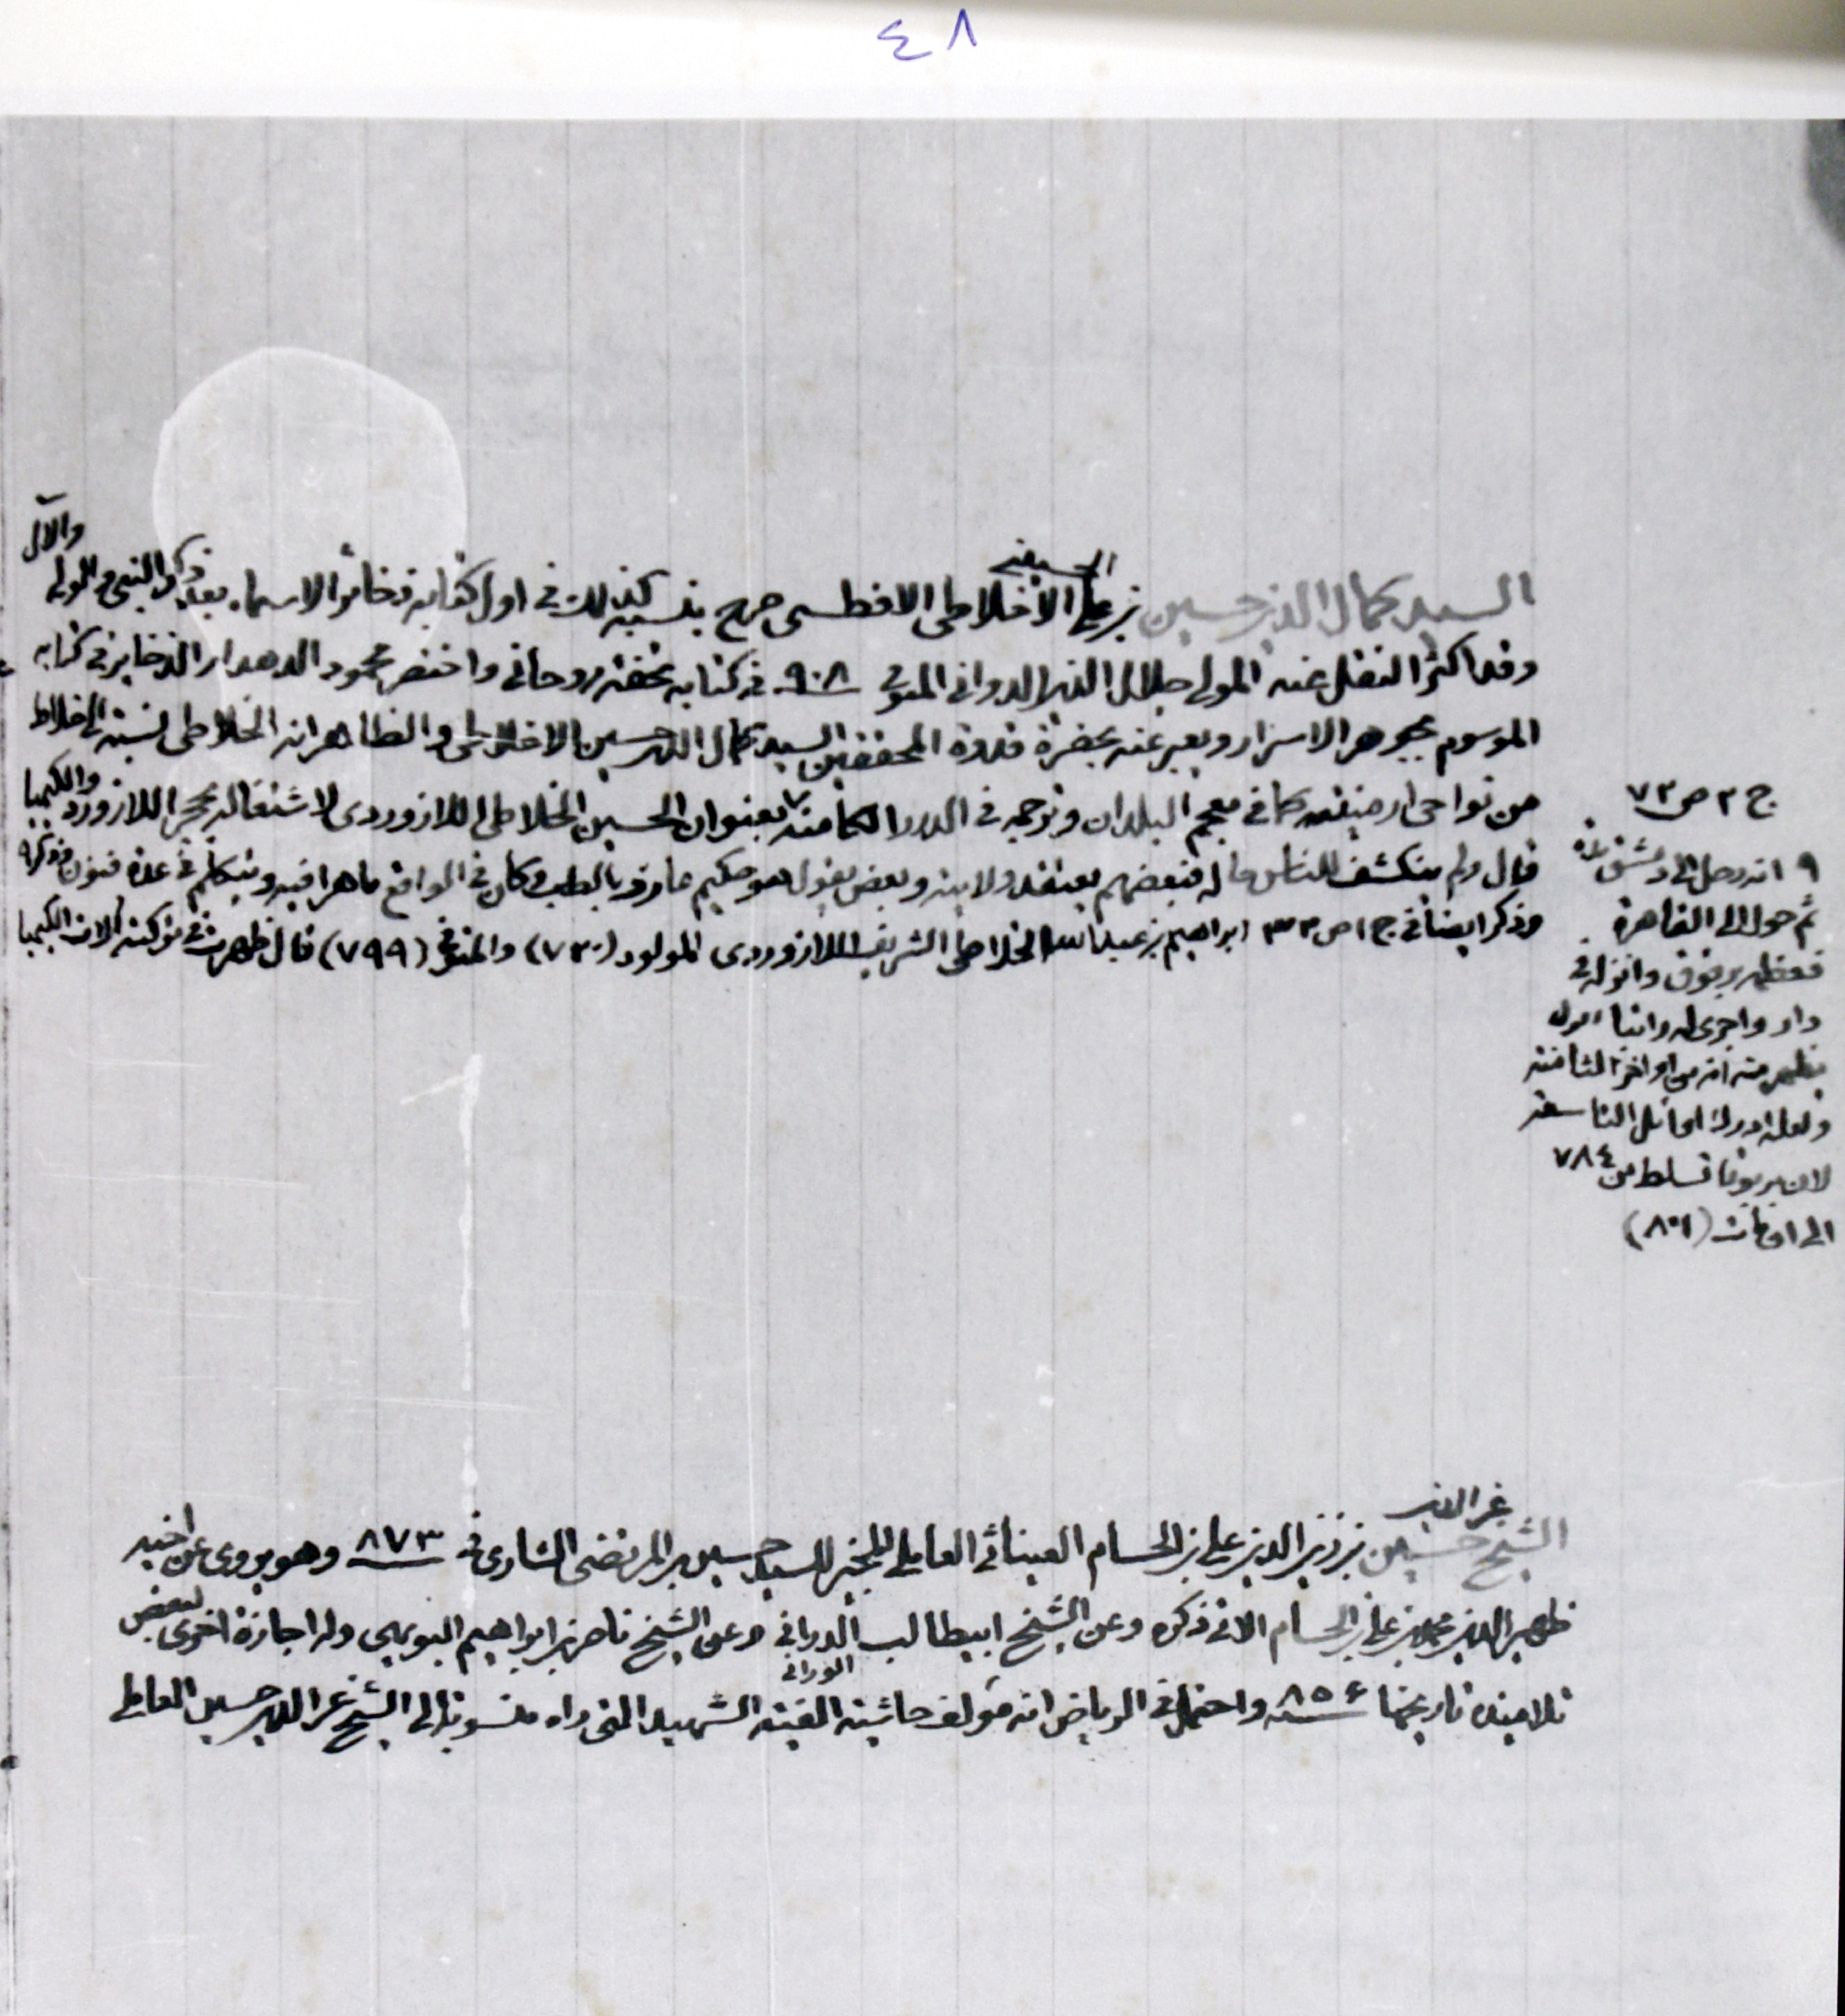 ٤٨
الحسيني
والآل
السيد كمال الدين حسين بن علي الأخلاطي الافطسي صرح بنسبه كذلك في اول كتابه ذخائر الاسماء بعد ذكر النبي المولى
وقد اكثر النقل عنه المولى جلال الدين الدواني المتوفى ٩٠٨ في كتابه تحفه روحاني واختصر محمود الدهدار الذخاير في كتابه
الموسوم بجوهر الاسرار ويعبر عنه بحضرة قدوة المحققين السيد كمال الدين حسين الاخلاطي والظاهر انه الخلاطي نسبته الى خلاط
من نواحي ارمينيه كما في معجم البلدان وترجمه في الدرر الكامنه بعنوان الحسين الخلاطي اللازوردي لاشتغاله بحجر اللازورد والكيميا
قال ولم ينكشف للناس حاله فبعضهم يعتقد ولايته وبعض يقول هو حكيم عارف بالطب وكان في الواقع ماهرا فيه ويتكلم في عدة فنون وذكر
وذكر ايضا في ج ١ ص ٣٣ ابراهيم بن عبد الله الخلاطي الشريف اللازوردي المولود (٧٣٠) والمتوفى (٧٩٩) قال ظهرت في تركته آلات الكيميا
ج ٢ ص ٧٣
انه رحل الى دمشق
ثم حول الى القاهرة
فعظمه برقوق وانزله في
دار واجرى له راتبا اقول
يظهر منه انه من اواخر الثامنه
ولعله ادرك اوائل التاسعه
لان برقوقا تسلط من ٧٨٤
الى ان مات (٨٠١)
عز الدين
الشيخ حسين بن زين الدين علي بن الحسام العيناثي العاملي المجيز للسيد حسين بن المرتضى الساروي في ٨٧٣ وهو يروى عن اخيه
ظهير الدين محمد بن علي بن الحسام الاتي ذكره وعن الشيخ ابيطالب الدراني وعن الشيخ ناصر بن ابراهيم البويهي وله اجازة اخرى لبعض
الوراني
تلاميذه تاريخها ٨٥٦ واحتمل في الرياض انه مؤلف حاشية الفية الشهيد التي راه منسوبا الى الشيخ عز الدين حسين العاملي